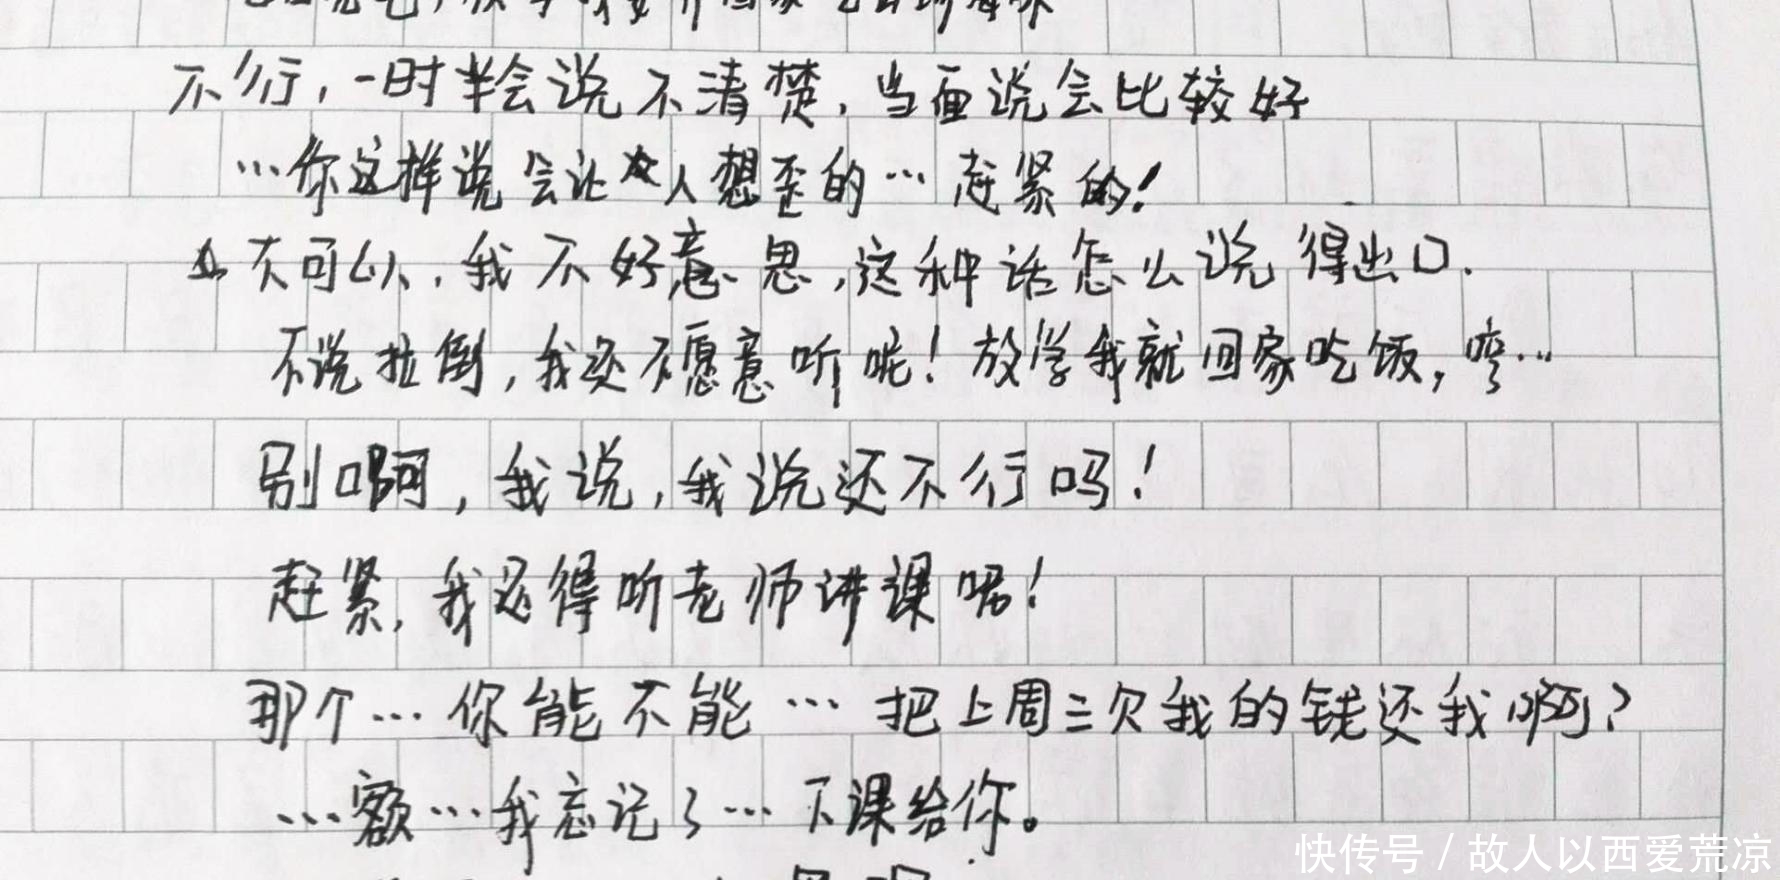 不行，一时半会说不清楚，当面说会比较好
…你这样说会让人想歪的…赶紧的！
不可以，我不好意思，这种话怎么说得出口.
不说拉倒，我还不愿意听呢！放学我就回家吃饭，哼…
别啊，我说，我说还不行吗！
赶紧，我还得听老师讲课呢！
那个…你能不能…把上周三欠我的钱还我啊？
…额…我忘记了…下课给你。
快传号/故人以西爱荒凉